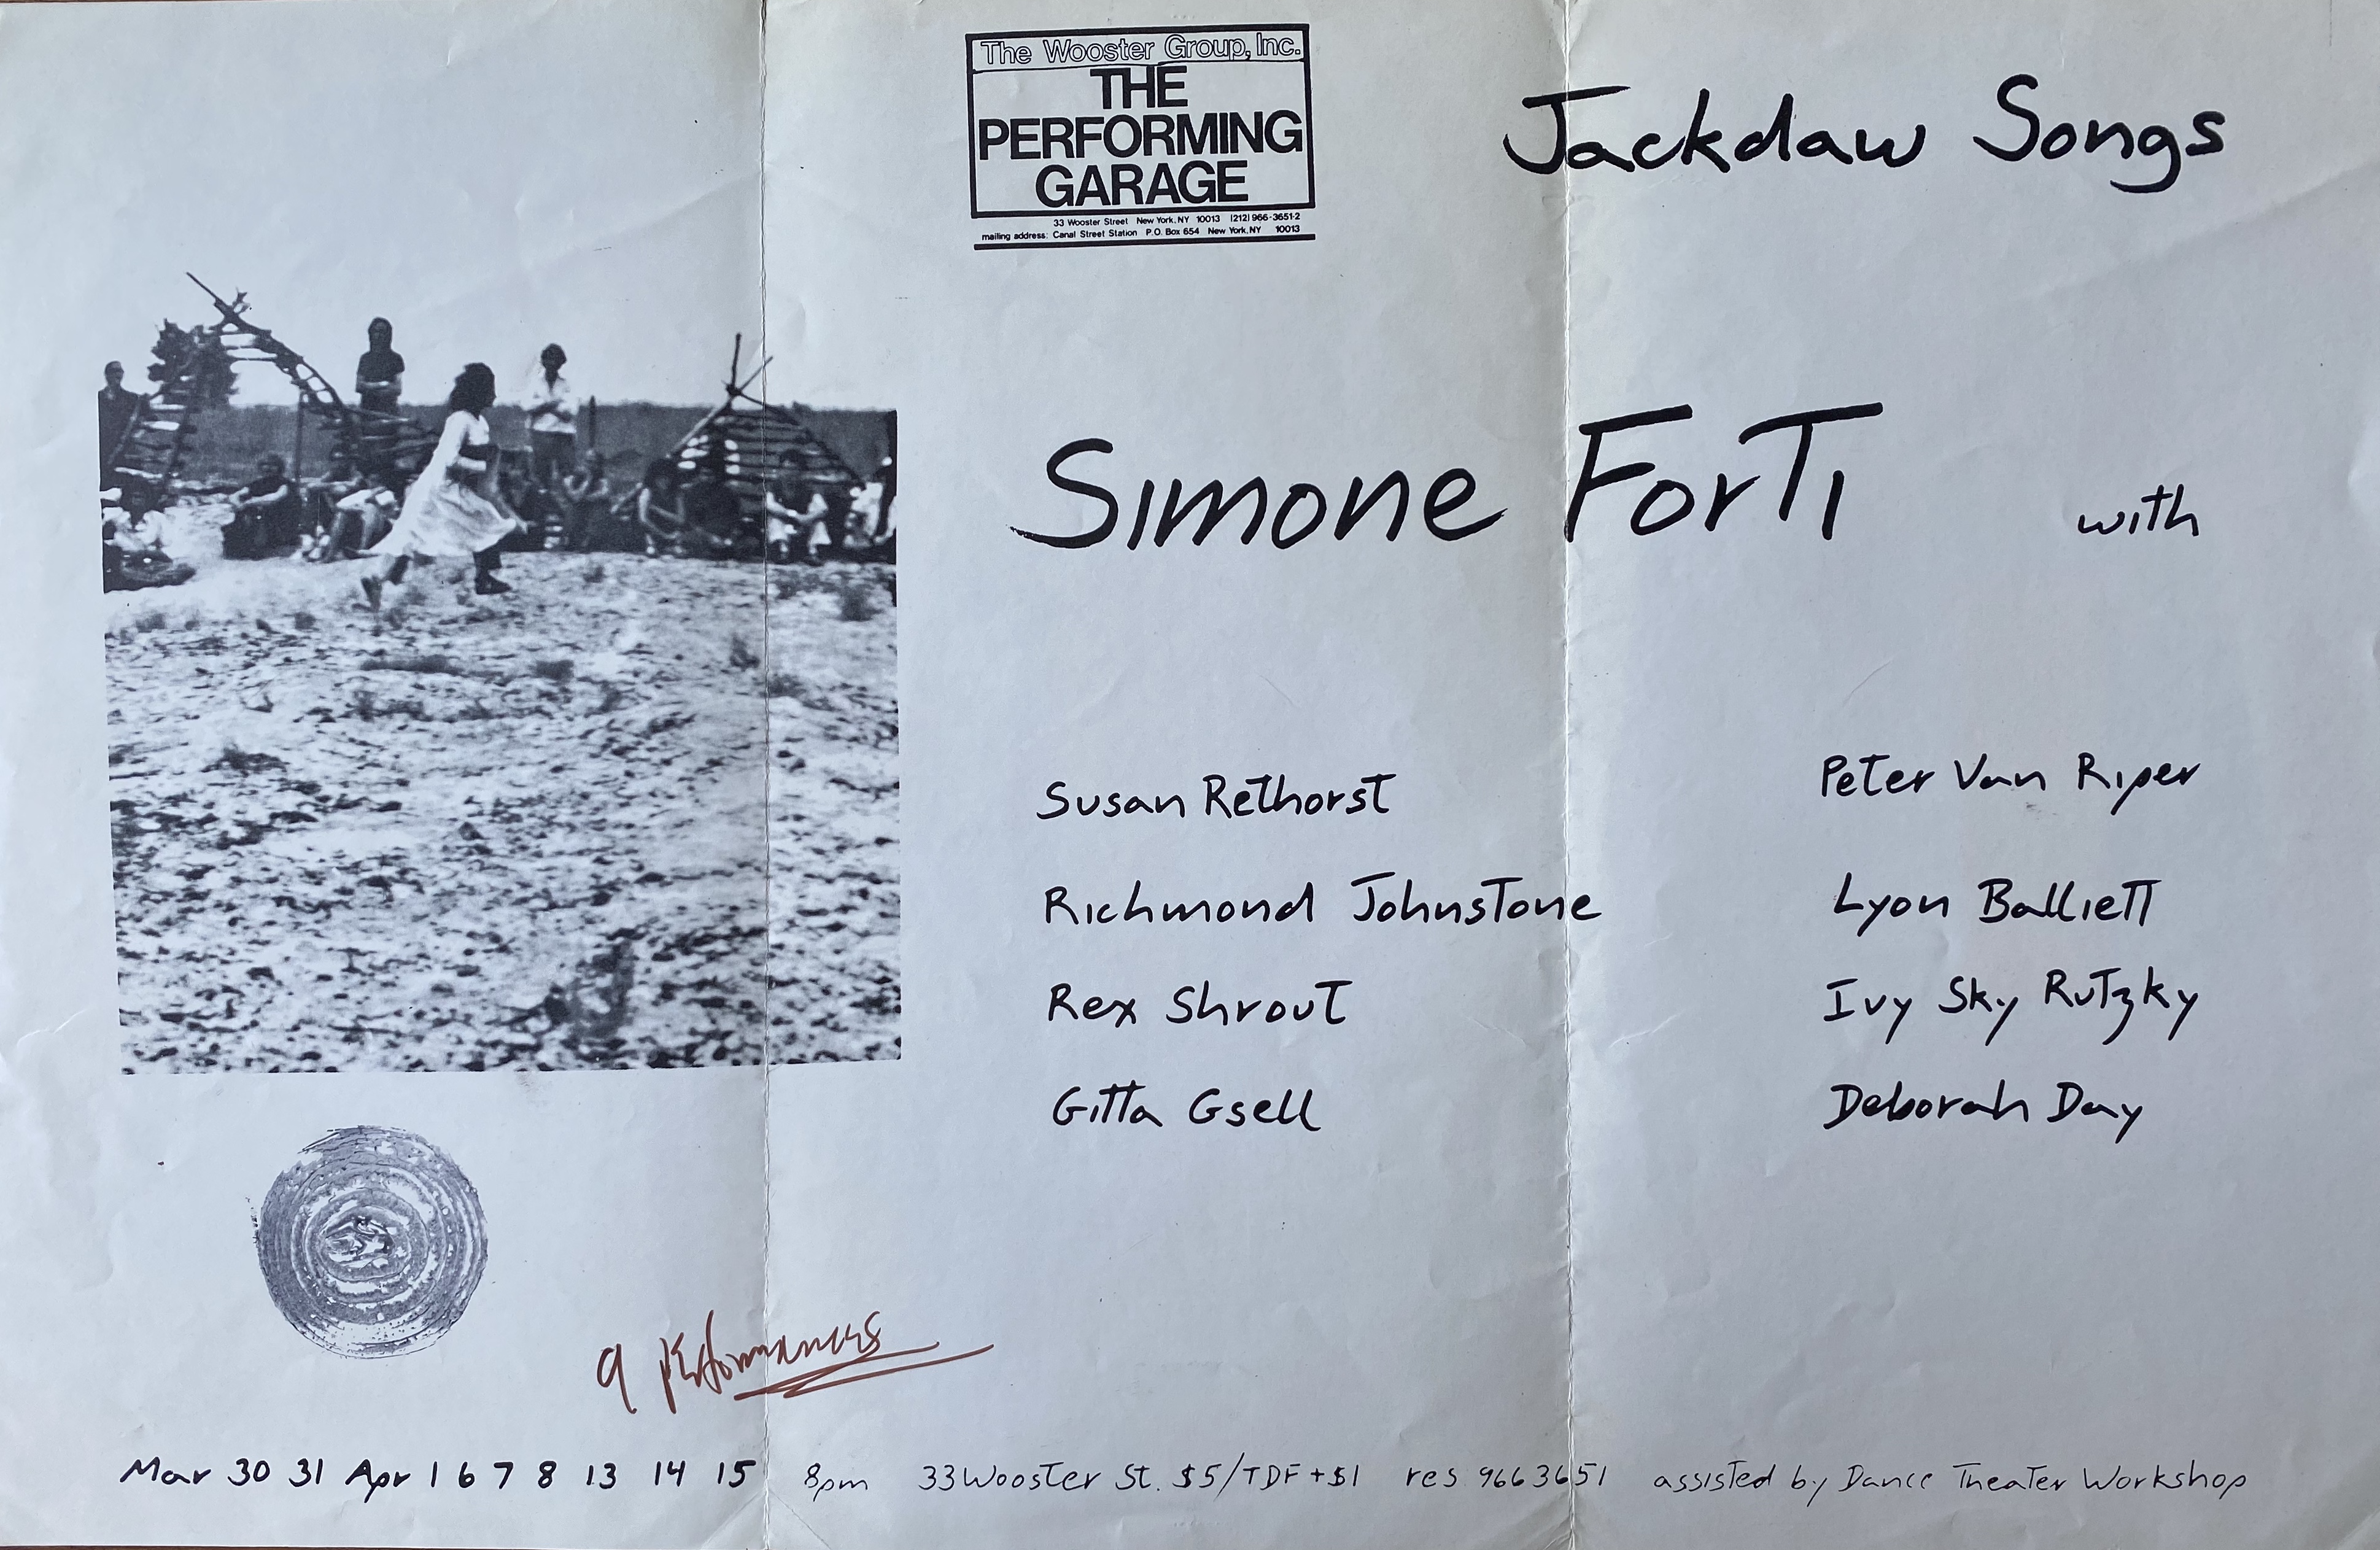 The Wooster Group, Inc.
THE
PERFORMING
GARAGE
33 Wooster Street New York, NY 10013 (212) 966-3651-2
mailing address: Canal Street Station P.O. Box 654 New York, NY 10013
Jackdaw Songs
Simone Forti with
Susan Rethorst
Richmond Johnstone
Rex Shrout
Gitta Gsell
Peter Van Riper
Lyon Balliett
Ivy Sky Rutzky
Deborah Day
9 performances
Mar 30 31 Apr 1 6 7 8 13 14 15 8pm 33 Wooster St. $5/TDF+$1 res 9663651 assisted by Dance Theater Workshop